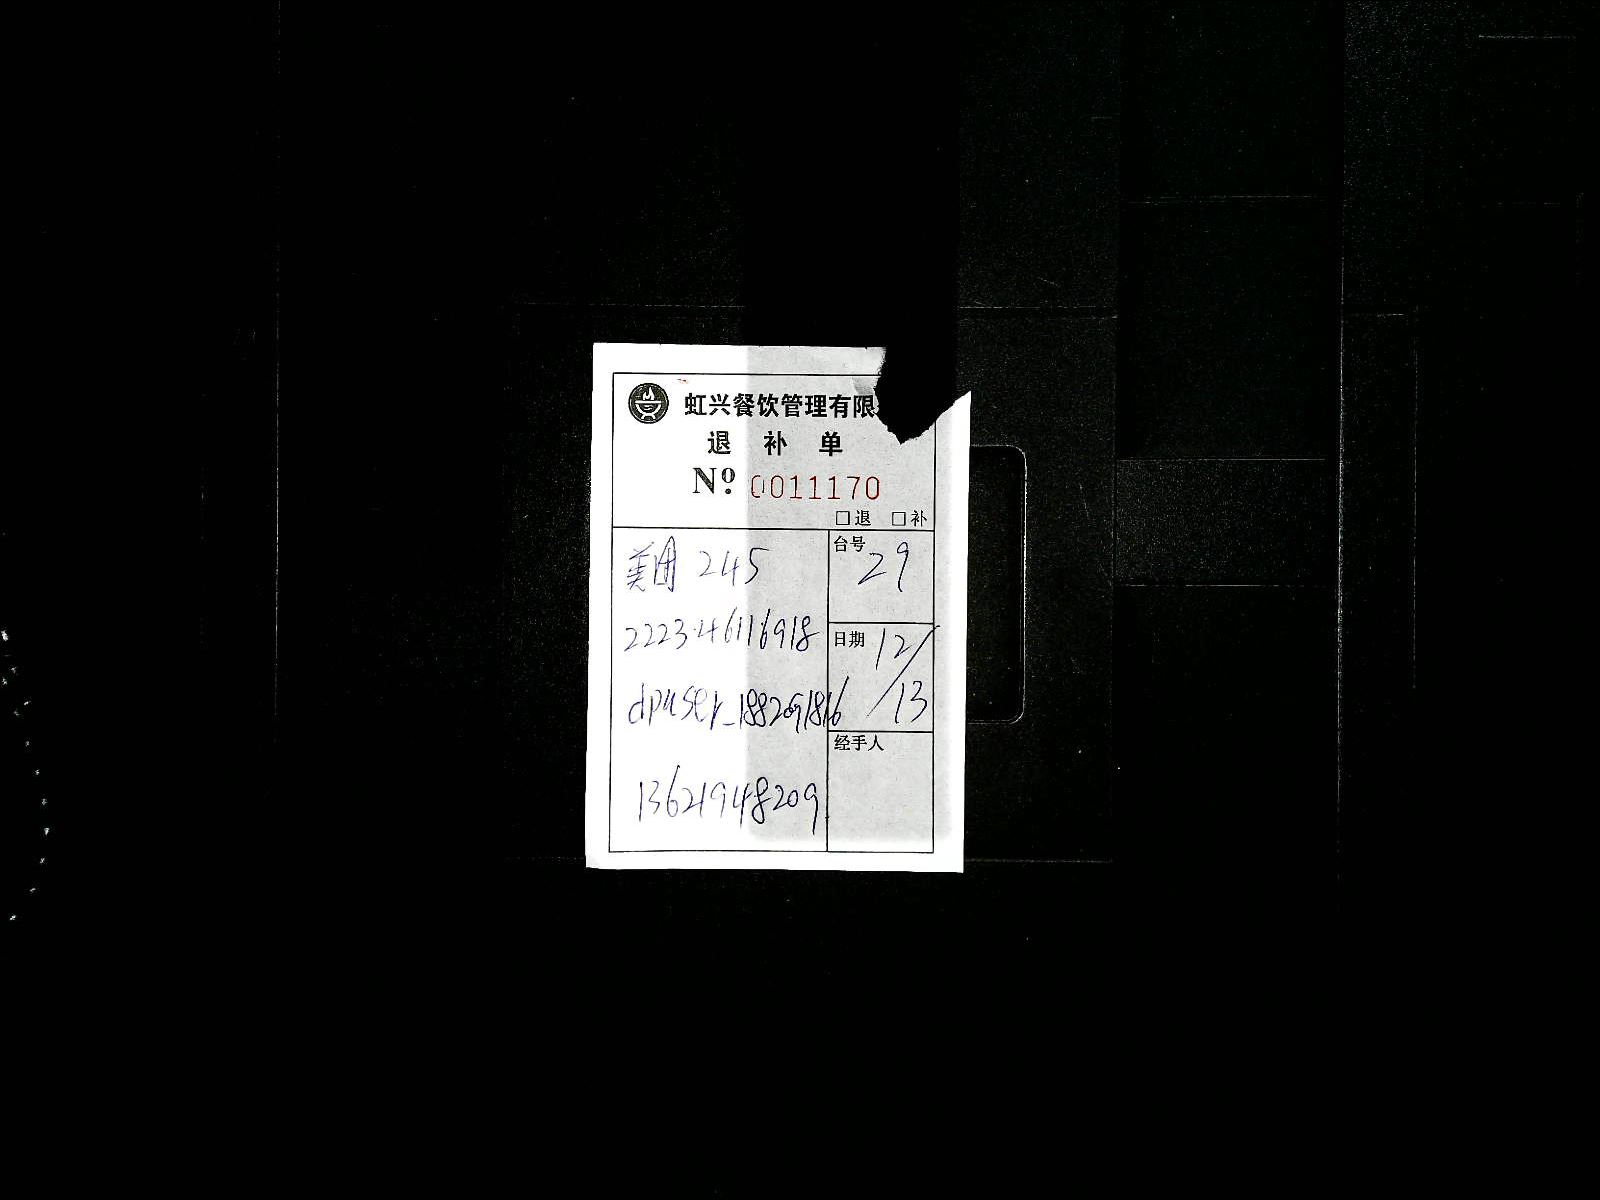 虹兴餐饮管理有限
退 补 单
Nº 0011170
□退 □补
台号 29
美团 245
222346116918
日期 12/13
dpuser_1882091816
经手人
13621948209